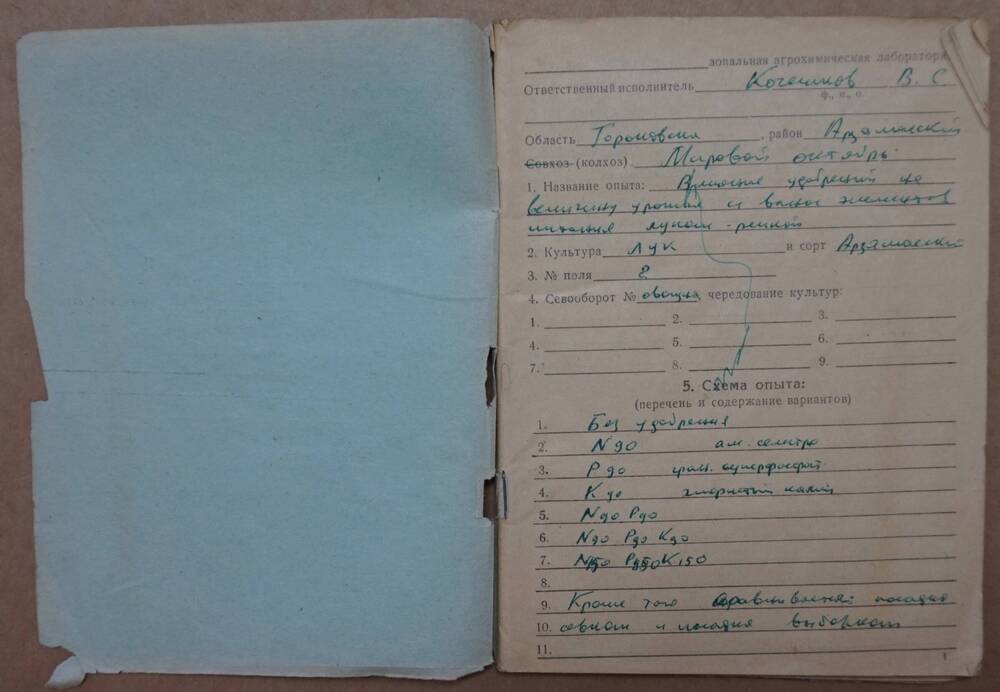 зональная агрохимическая лаборатори
Ответственный исполнитель В. С.
ф., и., о.
Область Горьковская, район Арзамасский
Совхоз (колхоз) Мировой октябрь
1. Название опыта: Влияние удобрений на
величину урожая и вынос элементов
питания луком-репкой
2. Культура ЛУК и сорт Арзамаский
3. № поля 2
4. Севооборот № овощн, чередование культур:
1. 2. 3.
4. 5. 6.
7. 8. 9.
5. Схема опыта:
(перечень и содержание вариантов)
1. Без удобрения
2. N 90 ам. селитра
3. P 90 гран. суперфосфат
4. K 90 хлористый калий
5. N90 P90
6. N90 P90 K90
7. N150 P150 K150
8.
9. Кроме того сравнивается: посадка
10. севком и посадка выборком
11.
1